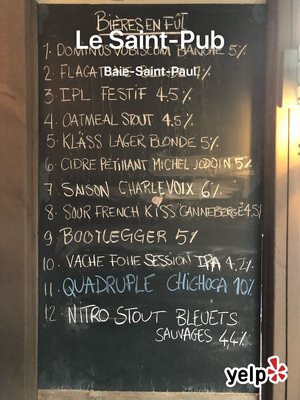 BIÈRES EN FÛT
Le Saint-Pub
1. DOMINUS VOBISCUM BLANCHE 5%
Baie-Saint-Paul,
3. IPL FESTIF 4.5%
4. OATMEAL STOUT 4.5%
5. KLÄSS LAGER BLONDE 5%
6. CIDRE PÉTILLANT MICHEL JODOIN 5%
7. SAISON CHARLEVOIX 6%
8. SOUR FRENCH KISS CANNEBERGE 4.5%
9. BOOTLEGGER 5%
10. VACHE FOLLE SESSION IPA 4,2%
11. QUADRUPLE CHICHOCA 10%
12. NITRO STOUT BLEUETS
SAUVAGES 4,4%
yelp